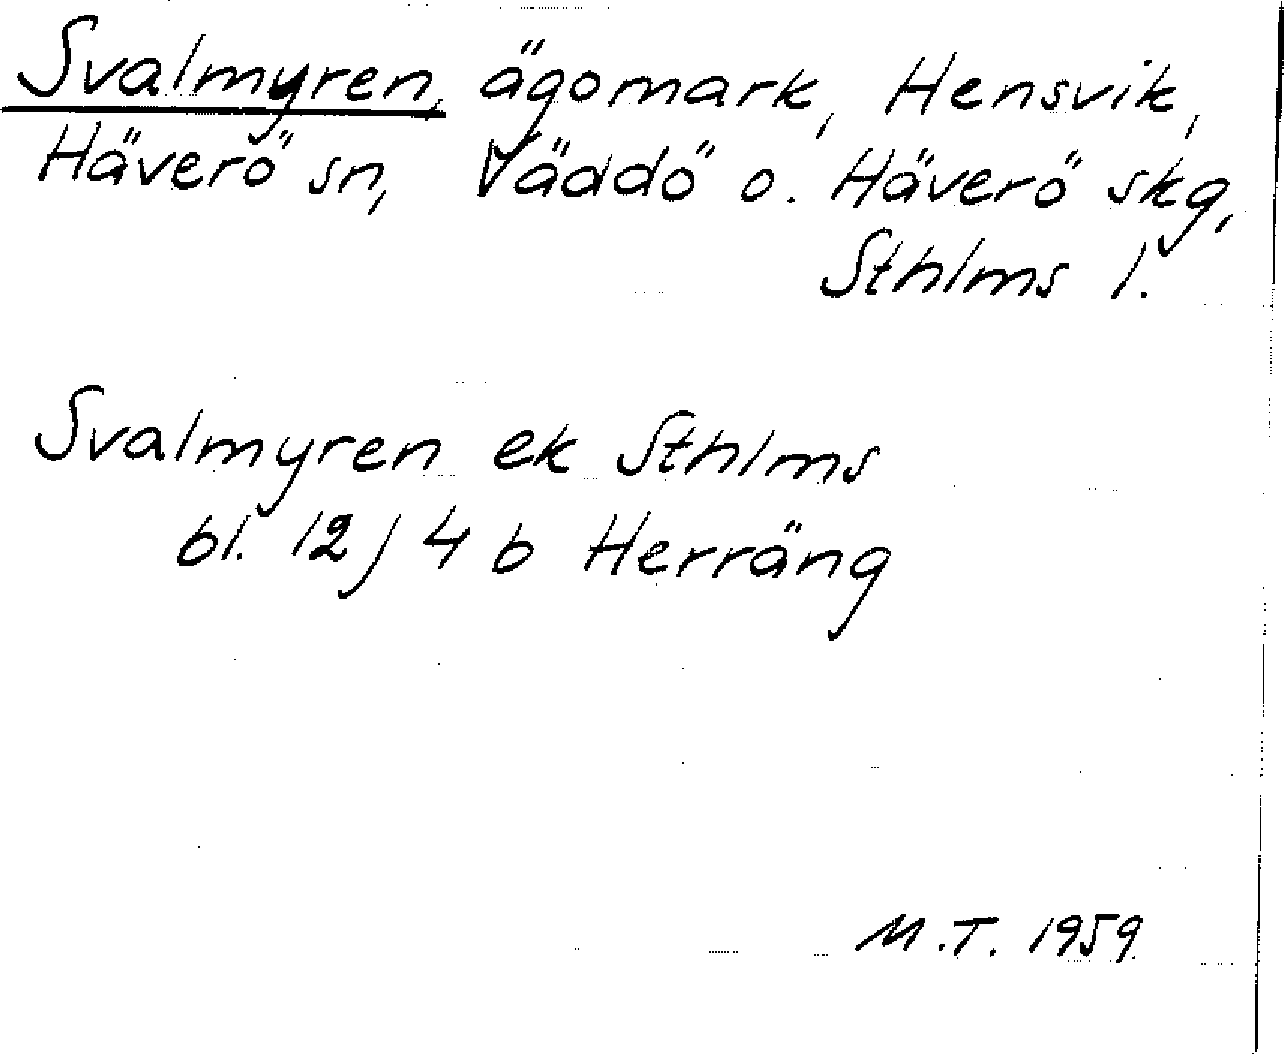 Svalmyren, ägomark, Hensvik,
Häverö sn, Väddö o. Häverö skg,
Sthlms l.
Svalmyren ek Sthlms
bl. 12j 4 b Herräng
M.T. 1959